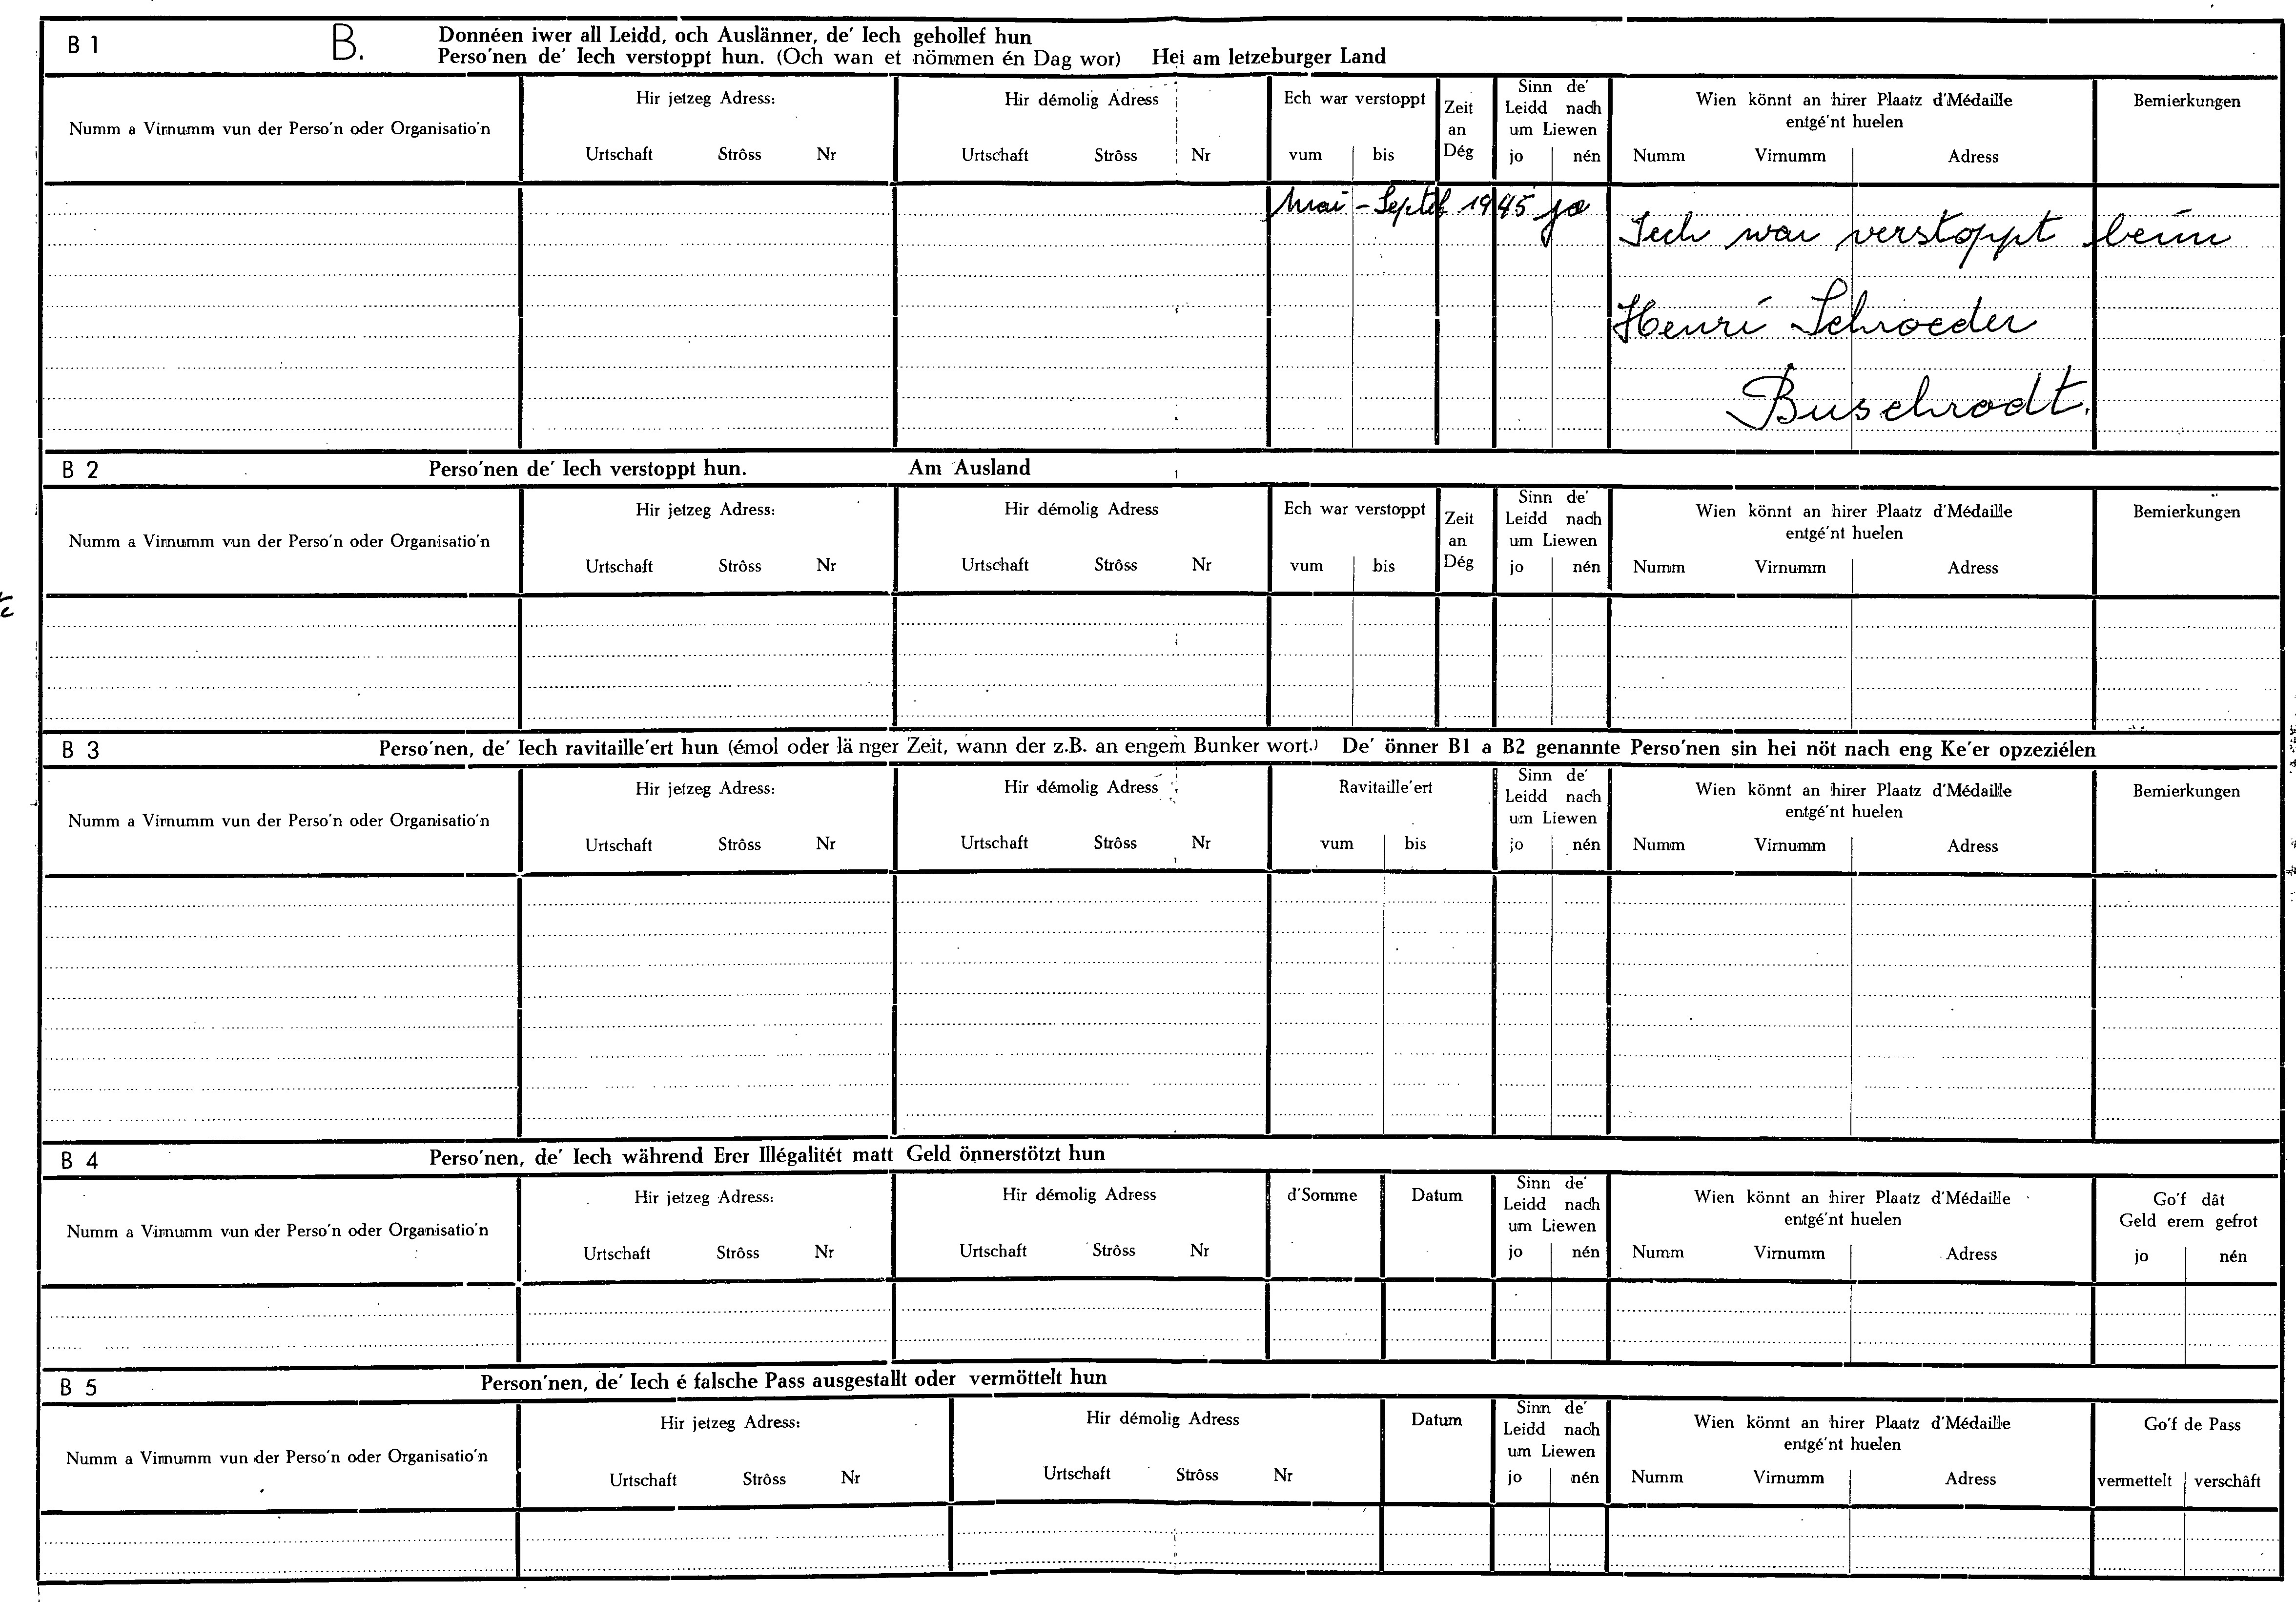 B 1
B.
Donnéen iwer all Leidd, och Auslänner, de' Iech gehollef hun
Perso'nen de' Iech verstoppt hun. (Och wan et nömmen én Dag wor) Hei am letzeburger Land
Numm a Virnumm vun der Perso'n oder Organisatio'n
Hir jetzeg Adress:
Urtschaft Strôss Nr
Hir démolig Adress
Urtschaft Strôss Nr
Ech war verstoppt
vum bis
Zeit
an
Dég
Sinn de'
Leidd nach
um Liewen
jo nén
Wien könnt an hirer Plaatz d'Médaille
entgé'nt huelen
Numm Virnumm Adress
Bemierkungen
Mai - Septb 1945 jo
Iech war verstoppt beim
Henri Schroeder
Buschrodt.
B 2
Perso'nen de' Iech verstoppt hun. Am Ausland
Numm a Virnumm vun der Perso'n oder Organisatio'n
Hir jetzeg Adress:
Urtschaft Strôss Nr
Hir démolig Adress
Urtschaft Strôss Nr
Ech war verstoppt
vum bis
Zeit
an
Dég
Sinn de'
Leidd nach
um Liewen
jo nén
Wien könnt an hirer Plaatz d'Médaille
entgé'nt huelen
Numm Virnumm Adress
Bemierkungen
B 3
Perso'nen, de' Iech ravitaille'ert hun (émol oder länger Zeit, wann der z.B. an engem Bunker wort.) De' önner B1 a B2 genannte Perso'nen sin hei nöt nach eng Ke'er opzeziélen
Numm a Virnumm vun der Perso'n oder Organisatio'n
Hir jetzeg Adress:
Urtschaft Strôss Nr
Hir démolig Adress
Urtschaft Strôss Nr
Ravitaille'ert
vum bis
Sinn de'
Leidd nach
um Liewen
jo nén
Wien könnt an hirer Plaatz d'Médaille
entgé'nt huelen
Numm Virnumm Adress
Bemierkungen
B 4
Perso'nen, de' Iech während Erer Illégalitét matt Geld önnerstötzt hun
Numm a Virnumm vun der Perso'n oder Organisatio'n
Hir jetzeg Adress:
Urtschaft Strôss Nr
Hir démolig Adress
Urtschaft Strôss Nr
d'Somme
Datum
Sinn de'
Leidd nach
um Liewen
jo nén
Wien könnt an hirer Plaatz d'Médaille
entgé'nt huelen
Numm Virnumm Adress
Go'f dât
Geld erem gefrot
jo nén
B 5
Person'nen, de' Iech é falsche Pass ausgestallt oder vermöttelt hun
Numm a Virnumm vun der Perso'n oder Organisatio'n
Hir jetzeg Adress:
Urtschaft Strôss Nr
Hir démolig Adress
Urtschaft Strôss Nr
Datum
Sinn de'
Leidd nach
um Liewen
jo nén
Wien könnt an hirer Plaatz d'Médaille
entgé'nt huelen
Numm Virnumm Adress
Go'f de Pass
vermettelt verschâft